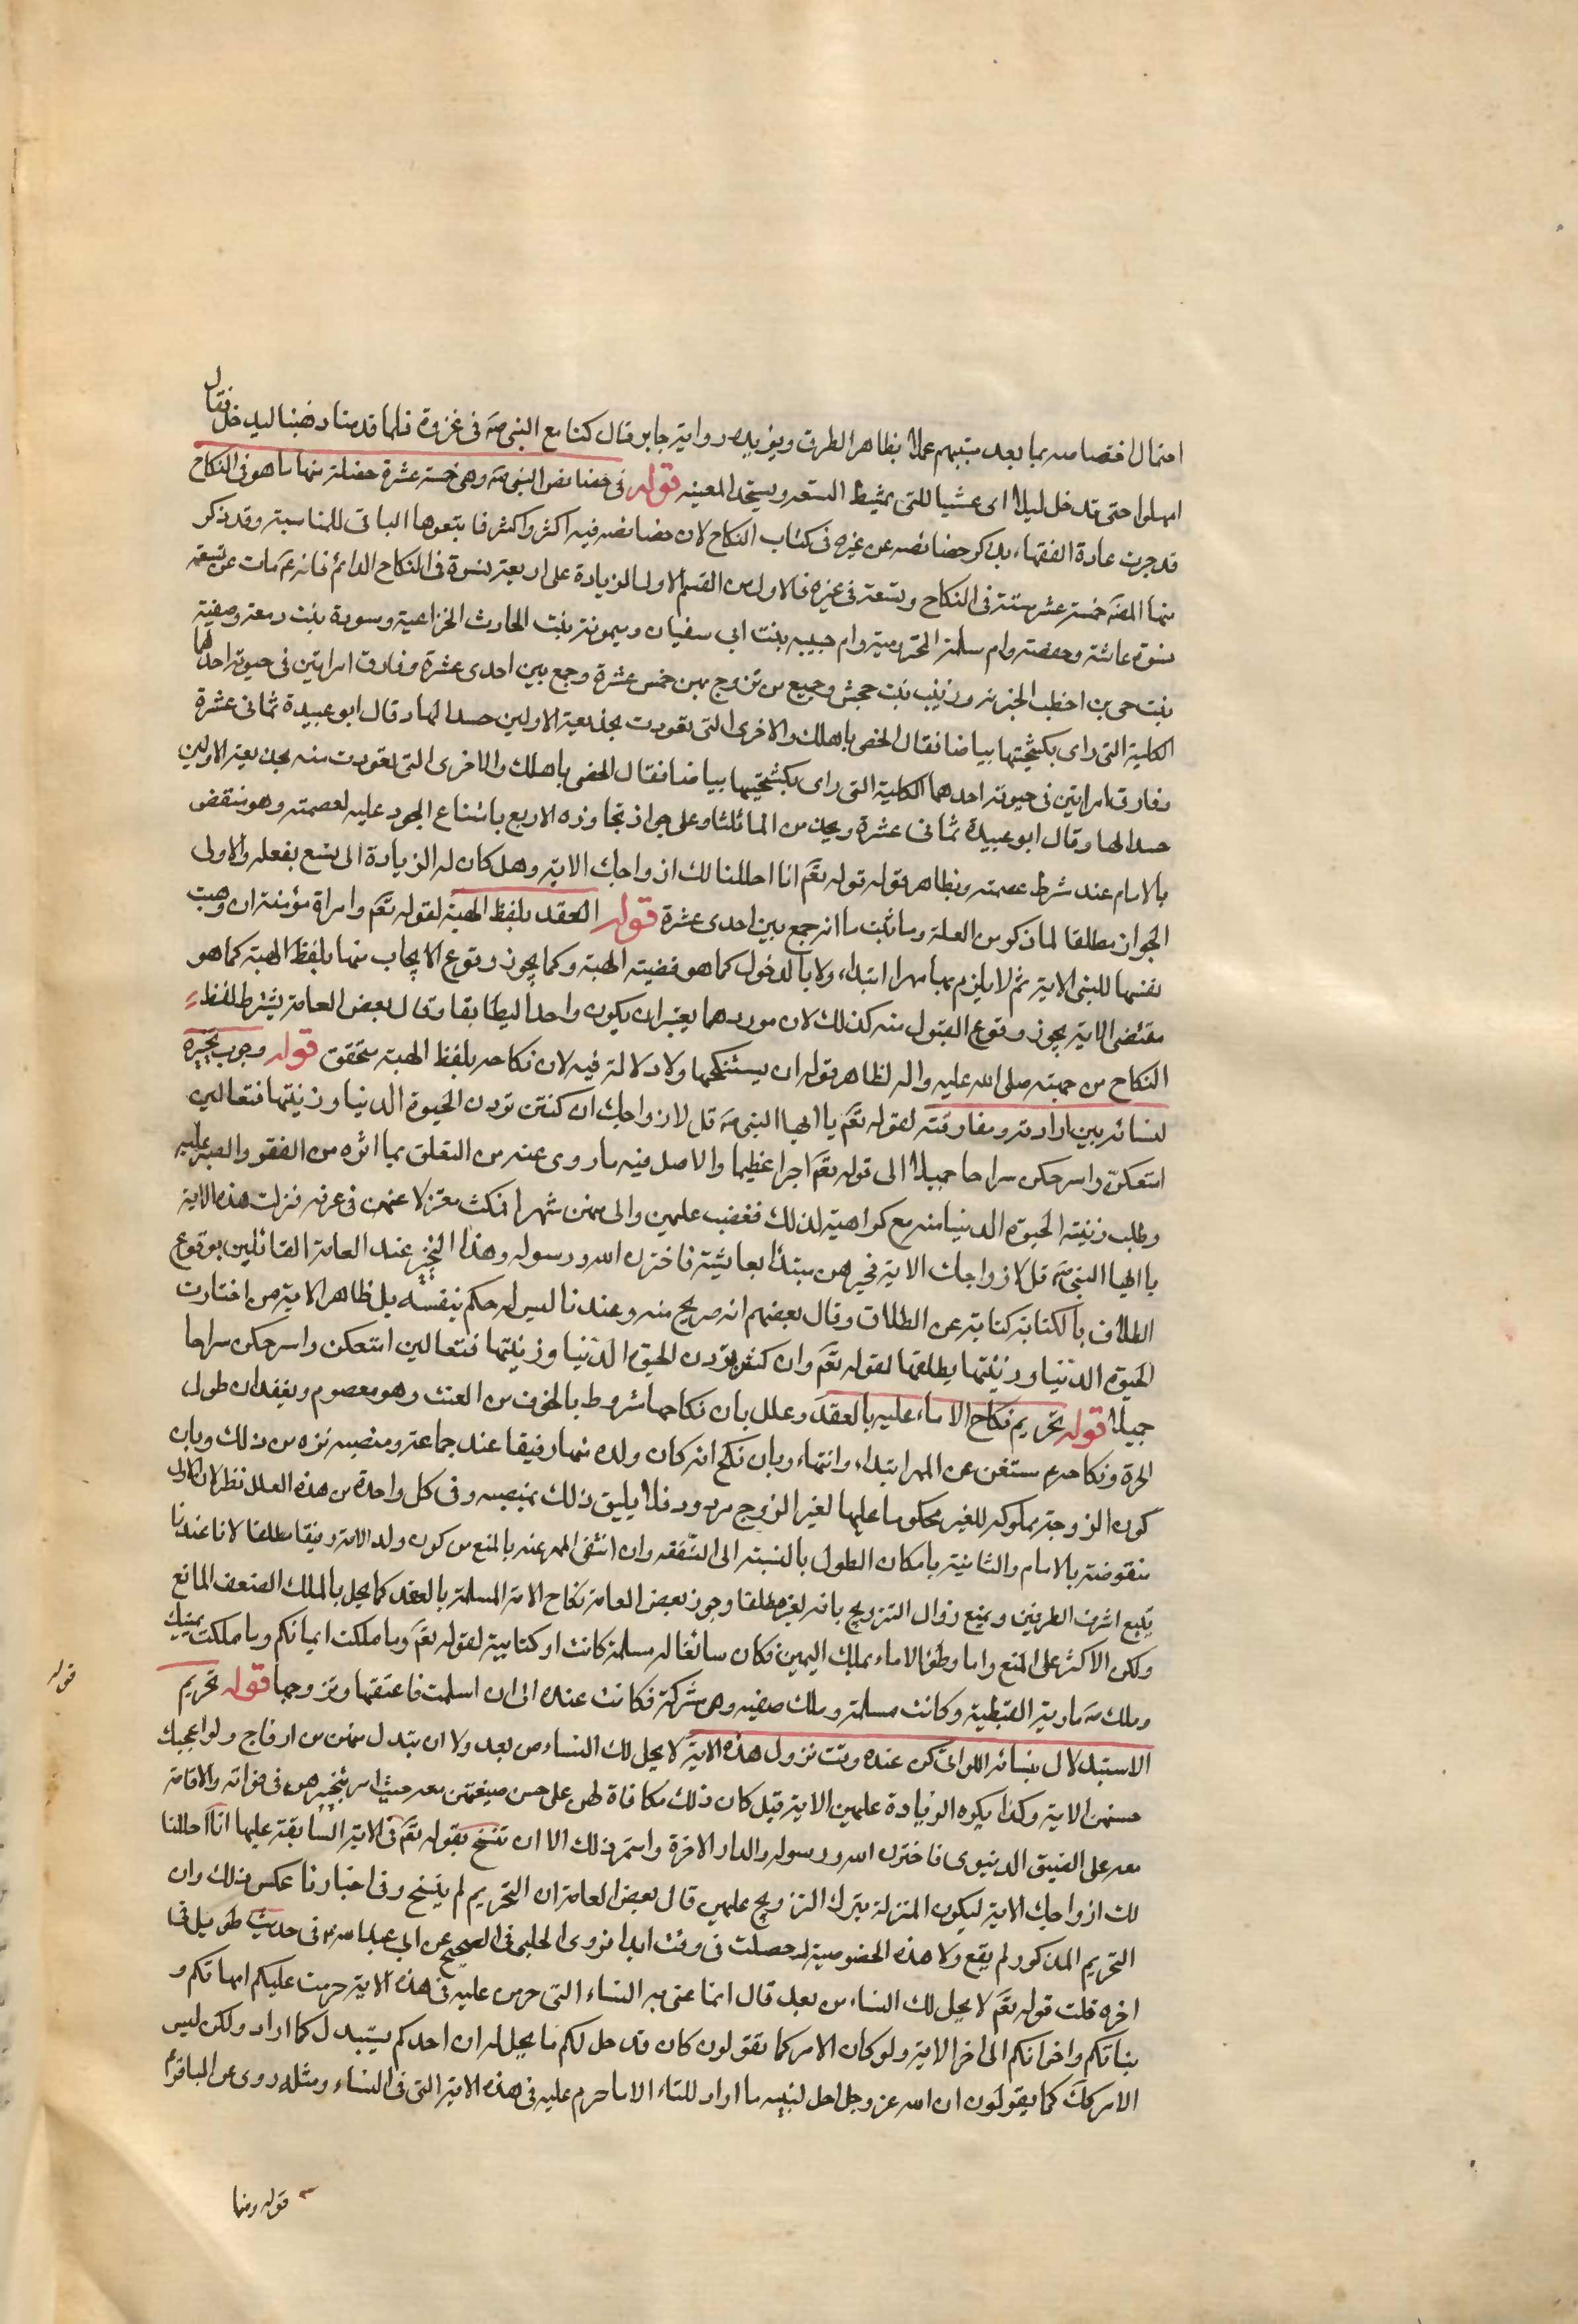 احتمال اختصاصه بما بعد مبيتهم عملا بظاهر الطرق ويؤيده رواية جابر قال كنا مع النبي صه في غزوة فلما قدمنا ذهبنا ليدخل فقال
امهلوا حتى تدخل ليلا اى عشيا للتى تمشيط الشعثه ويستحد المغيبه قوله في خصائص النبي صه وهى خمسة عشرة خصلة منها ما هو في النكاح
قد جرت عادة الفقهاء بذكر خصائصه عن غيره في كتاب النكاح لان خصائصه فيه اكثر واكثر فاتبعوها الباقى للمناسبة وقد ذكر
منها المصَ خمسة عشر ستة في النكاح وتسعة في غيره فالاول من القسم الاول الزيادة على اربعة نسوة في النكاح الدائم فانه عَم مات عن تسعة
نسوة عائشة وحفصة وام سلمة المخزومية وام حبيبه بنت ابى سفيان وميمونة بنت الحارث الخزاعية وسودة بنت زمعة وصفية
بنت حى بن اخطب الخبرية وزينب بنت جحش وجميع من تزوج بهن خمس عشرة وجمع بين احدى عشرة وفارق امراتين في حيوته احدهما
الكلبية التى راى بكشحيتها بياضا فقال الحقى باهلك والاخرى التى تعوذت بخديعة الاولين حسدا لها وقال ابو عبيدة ثمانى عشرة
وفارق امراتين في حيوته احدهما الكلبية التى راى بكشحيتها بياضا فقال الحقى باهلك والاخرى التى تعوذت منه بخديعة الاولين
حسدا لها وقال ابو عبيدة ثمانى عشرة وعلل جواز تجاوزه الاربع بامتناع الجور عليه لعصمته وهو منتقض
بالامام عند شرط عصمته وبظاهر قوله قوله تعَم انا احللنا لك ازواجك الاية وهل كان له الزيادة الى تسع بفعله والاولى
الجواز مطلقا لما ذكر من العلة وما ثبت ما انه جمع بين احدى عشرة قوله العقد بلفظ الهبة لقوله تعَم وامراة مؤمنة ان وهبت
نفسها للنبى الاية ثم لا يلزم بها مهرا ابتداء ولا بالدخول كما هو قضية الهبة وكما يجوز وقوع الايجاب منها بلفظ الهبة كما هو
مقتضى الاية يجوز وقوع القبول منه كذلك لان موردهما يعتبر ان يكون واحدا ليطابقا وقال بعض العامة يشترط لفظ
النكاح من جهته صلى الله عليه واله لظاهر قوله ان يستنكحها ولا دلالة فيه لان نكاحه بلفظ الهبة متحقق قوله وجوب تخييره
لنسائه بين ارادته ومفارقته لقوله تعَم يا ايها النبى صه قل لازواجك ان كنتن تردن الحيوة الدنيا وزينتها فتعالين
امتعكن واسرحكن سراحا جميلا الى قوله تعَم اجرا عظيما والاصل فيه ما روى عنه من التعلق بما اثره من الفقر والصبر عليه
وطلب زينته الحيوة الدنيا منه مع كراهية لذلك فغضب عليهن والى منهن شهرا فمكث معتزلا عنهن في غرفه فنزلت هذه الاية
يا ايها النبى صه قل لازواجك الاية فخيرهن مبتدأ بعائشة فاخترن الله ورسوله وهذا التخيير عند العامة القائلين بوقوع
الطلاق بالكناية كناية عن الطلاق وقال بعضهم انه صريح منه وعندنا ليس له حكم بنفسه بل ظاهر الاية من اختارت
الحيوة الدنيا وزينتها يطلقها لقوله تعَم وان كنتن تردن الحيوة الدنيا وزينتها فتعالين امتعكن واسرحكن سراحا
جميلا قوله تحريم نكاح الاماء عليه بالعقد وعلل بان نكاحها مشروط بالخوف من العنت وهو معصوم وبفقدان طول
الحرة ونكاحه مستغن عن المهر ابتداء وانتهاء وبان نكح امة كان ولده منها رقيقا عند جماعة ومنصبه نزه من ذلك وبان
كون الزوجة مملوكه للغير محكوما عليها لغير الزوج مردود فلا يليق ذلك بمنصبه وفى كل واحدة من هذه العلل نظر لان الاولى
منقوضة بالامام والثانية بامكان الطول بالنسبة الى النفقه وان انتفى المهر عنه بالمنع من كون ولد الامة رقيقا مطلقا لانا عندنا
يتبع اشرف الطرفين ويمنع زوال التزويج بانه لغيره مطلقا وجوز بعض العامة نكاح الامة المسلمة بالعقد كما يحل بالملك الضعف المانع
ولكن الاكثر على المنع واما وطؤ الاماء بملك اليمين فكان سائغا له مسلمة كانت او كتابية لقوله تعَم وما ملكت ايمانكم وما ملكت يمينك
وملك صه مارية القبطية وكانت مسلمة وملك صفيه وهى مشركة فكانت عنده الى ان اسلمت فاعتقها وتزوجها قوله تحريم
الاستبدلال بنسائه اللواتى كن عنده وقت نزول هذه الاية لا يحل لك النساء من بعد ولا ان تبدل بهن من ازواج ولو اعجبك
حسنهن الاية وكذا يكره الزيادة عليهن الاية قبل كان ذلك مكافاة لهن على حسن صنيعهن معه حيث امر بتخييرهن في فراقه والاقامة
معه على الضيق الدنيوى فاخترن الله ورسوله والدار الاخرة واستمر ذلك الا ان تنسخ بقوله تعَم في الاية السابقة عليها انا احللنا
لك ازواجك الاية ليكون المنزلة بترك التزويج عليهن قال بعض العامة ان التحريم لم ينسخ وفى اخبارنا عكس ذلك وان
التحريم المذكور لم يقع ولا هذه الخصوصية له حصلت في وقت ابدا فروى الحلبى في الصحيح عن ابى عبدالله ع في حديث طويل في
اخره قلت قوله تعَم لا يحل لك النساء من بعد قال انما عنى به النساء التى حرمن عليه في هذه الاية حرمت عليكم امهاتكم و
بناتكم واخواتكم الى اخر الاية ولو كان الامر كما تقولون كان قد حل لكم ما يحل له ان احدكم يستبدل كما اراد ولكن ليس
الامر كك كما يقولون ان الله عز وجل احل لنبيه ما اراد للنساء الا ما حرم عليه في هذه الاية التى في النساء ومثله روى عن الباقر ع
قوله
قوله ومنها